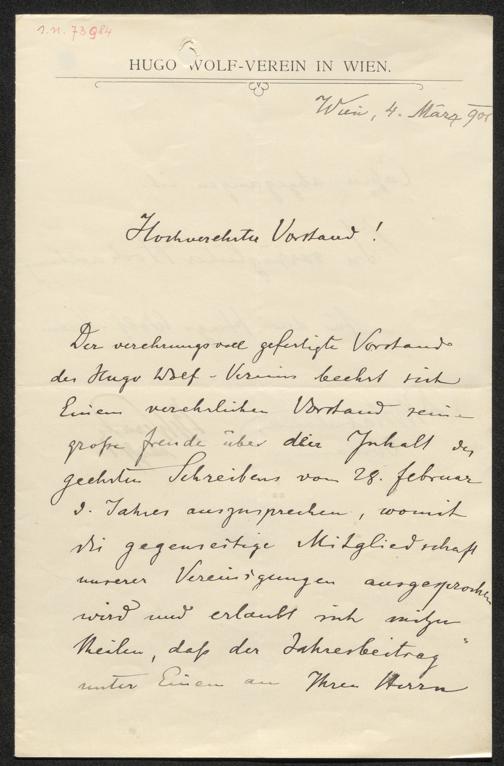 I.N. 73984
HUGO WOLF-VEREIN IN WIEN.
Wien, 4. März 901
Hochverehrter Vorstand!
Der verehrungsvoll gefertigte Vorstand
des Hugo Wolf-Vereins beehrt sich
Einem verehrlichen Vorstand seine
große Freude über den Inhalt des
geehrten Schreibens vom 28. Februar
d. Jahres auszusprechen, womit
die gegenseitige Mitgliedschaft
unserer Vereinigungen ausgesprochen
wird und erlaubt sich mitzu
theilen, daß der Jahresbeitrag
unter Einem an Ihren Herrn